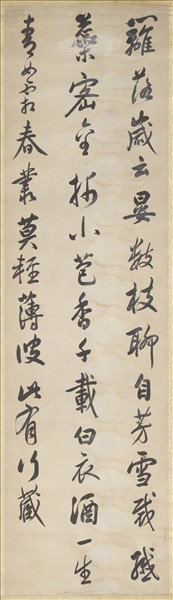 籬落歲云晏數枝聊自芳雪裁纖
蘂密金拆小苞香千載白衣酒一生
青女霜春叢莫輕薄彼此有行藏